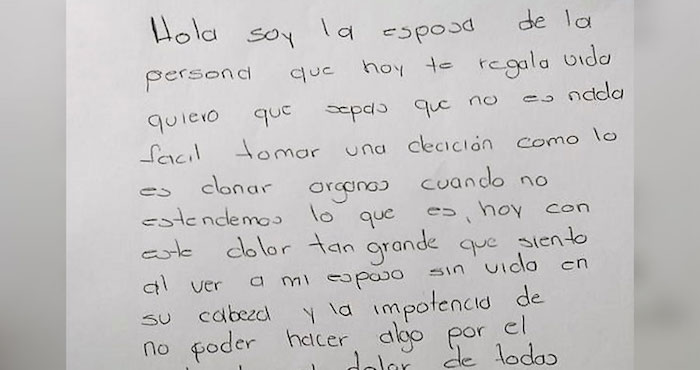 Hola soy la esposa de la
persona que hoy te regala vida
quiero que sepas que no es nada
facil tomar una decición como lo
es donar organos cuando no
estendemos lo que es, hoy con
este dolor tan grande que siento
al ver a mi esposo sin vida en
su cabeza y la impotencia de
no poder hacer algo por el
dolor de todas